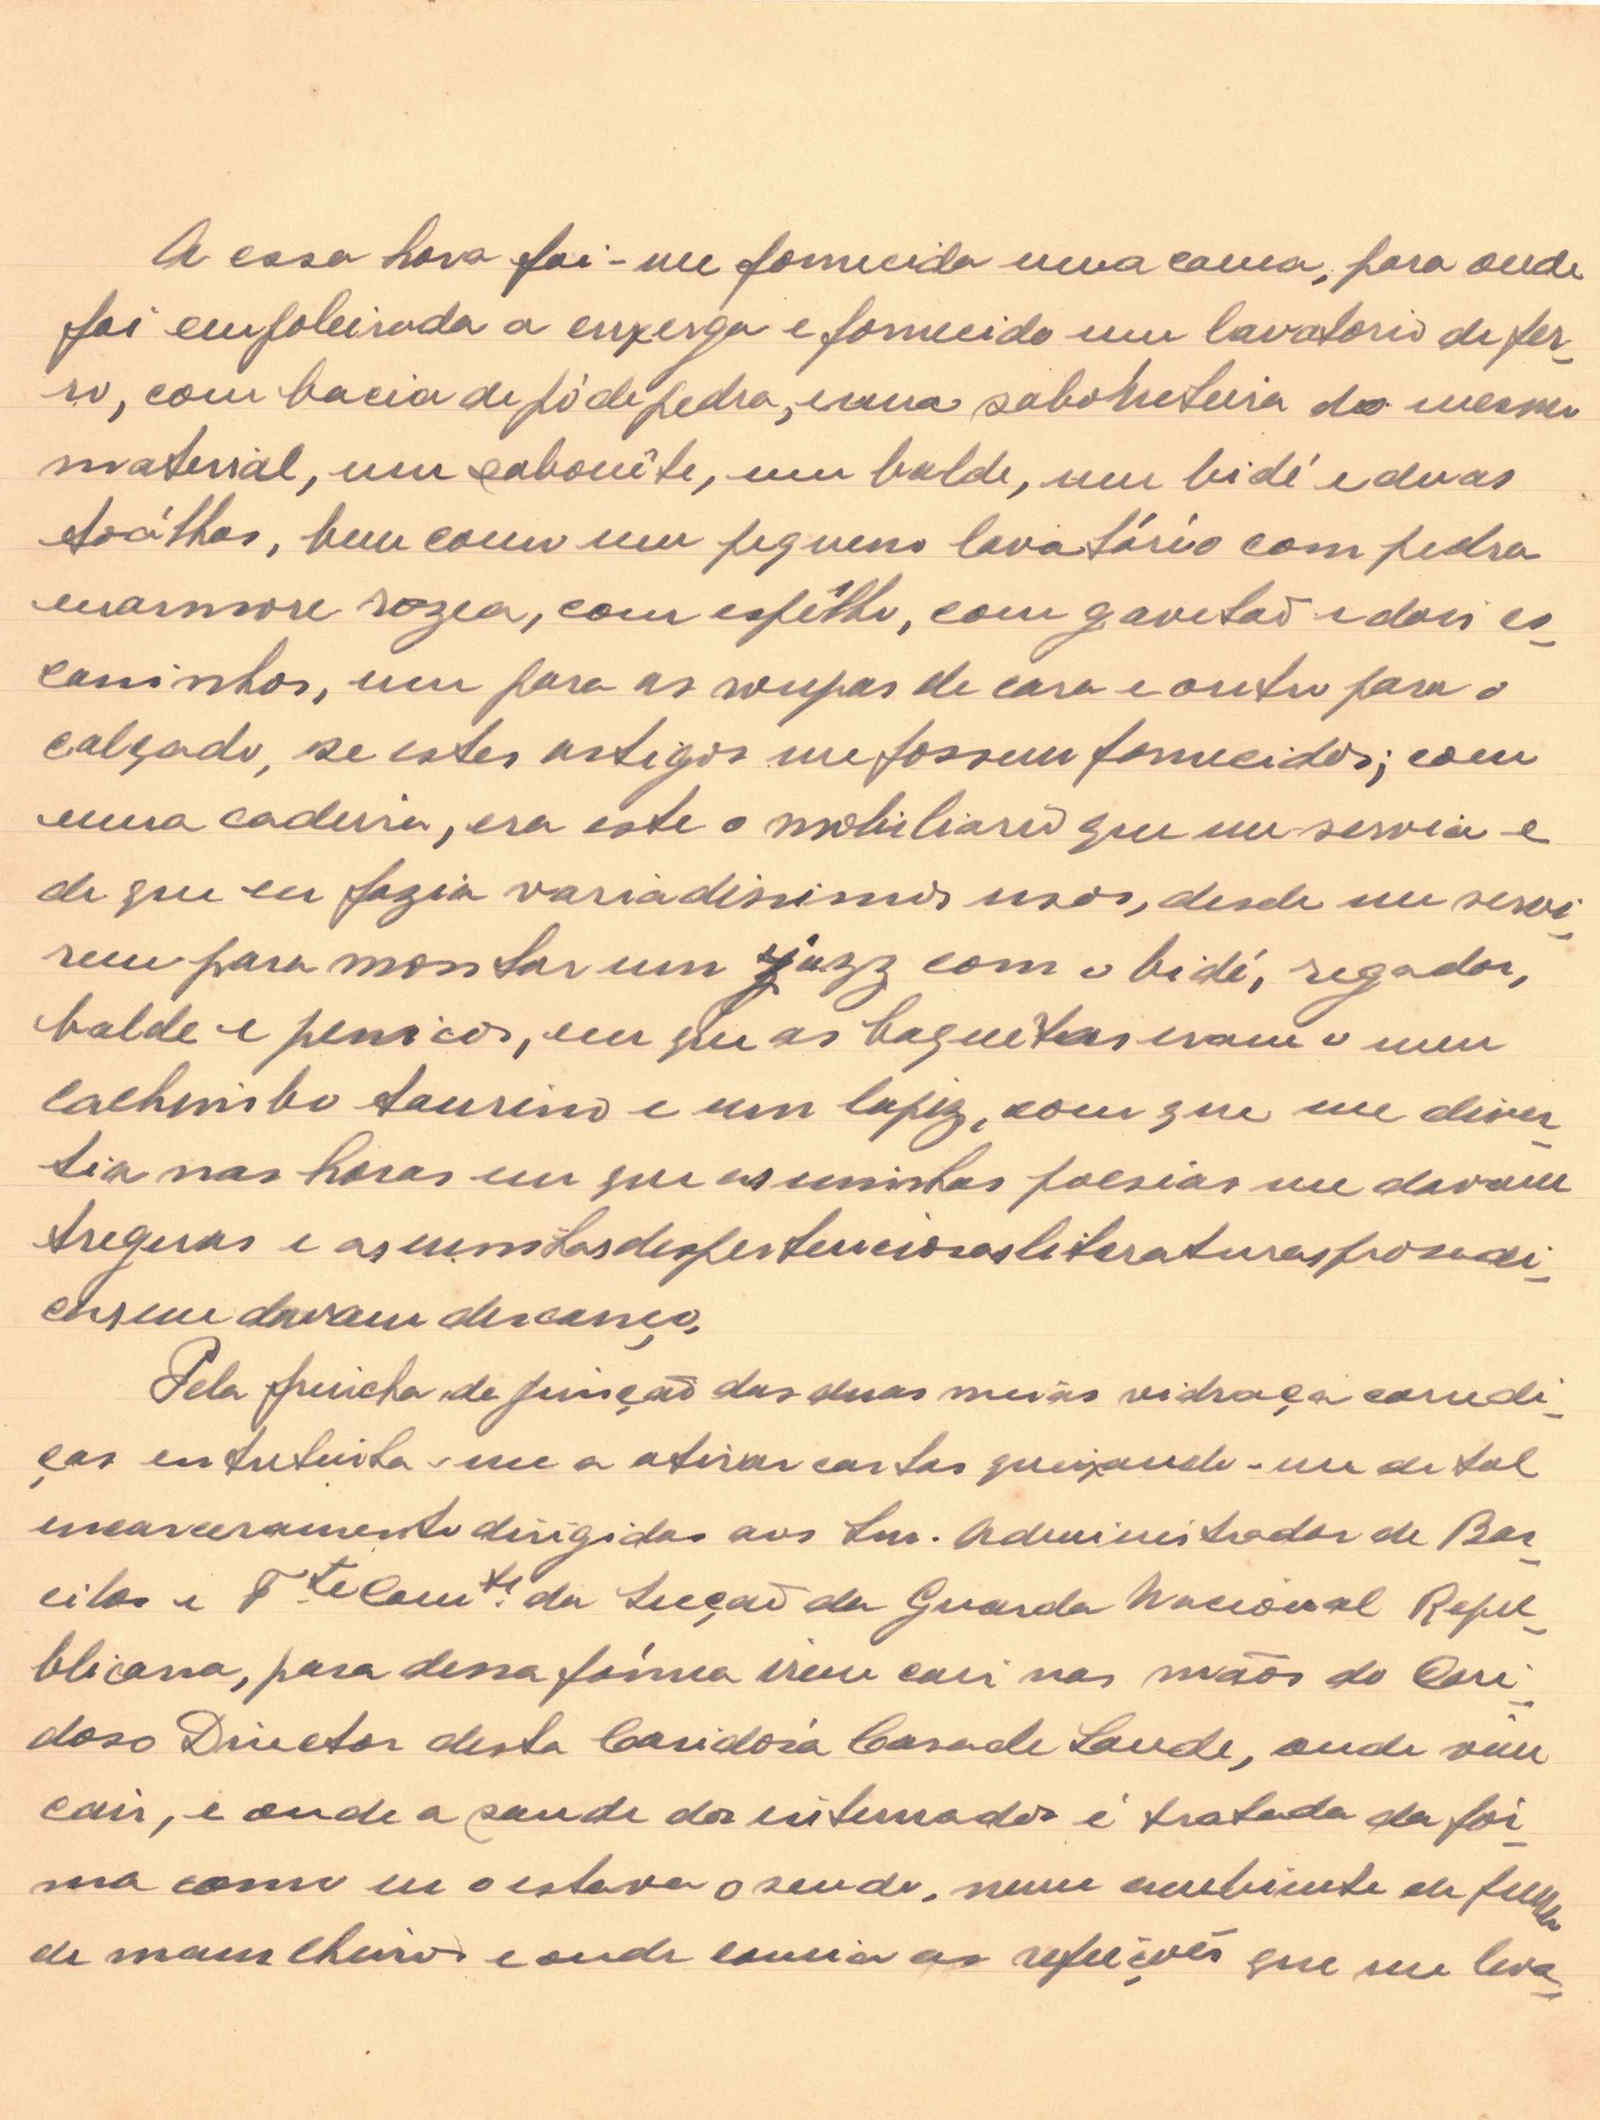 A essa hora foi-me fornecida uma cama, para onde
foi empoleirada a enxerga e fornecido um lavatorio de fer-
ro, com bacia de pó de pedra, uma saboneteira do mesmo
material, um sabonête, um balde, um bidé e duas
toálhas, bem como um pequeno lavatório com pedra
marmore rozea, com espêlho, com gavetaõ e dois es-
caninhos, um para as roupas de cara e outro para o
calçado, se estes artigos me fossem fornecidos; com
uma cadeira, era este o mobiliario que me servia e
de que eu fazia variadissimos usos, desde me servi-
rem para montar um jazz com o bidé, regador,
balde e penicos, em que as baquetas eram o meu
cachimbo taurino e um lapiz, com que me diver-
tia nas horas em que as minhas poesias me davam
treguas e as minhas despertenciosas literaturas prosai-
cas me davam descanço.
Pela frincha de junçaõ das duas meias vidraça corredi-
ças entretinha-me a atirar cartas queixando-me de tal
encarceramento dirigidas aos Snr. Administrador de Bar-
celos e T.te Com.te da Secçaõ da Guarda Nacional Repu-
blicana, para dessa fórma irem cair nas mãos do Cari-
doso Director desta Caridosa Casa de Saude, onde vim
cair, e onde a saude dos internados é tratada da fór-
ma como eu o estava sendo, num ambiente de
de maus cheiros e onde comia as refeições que me leva-